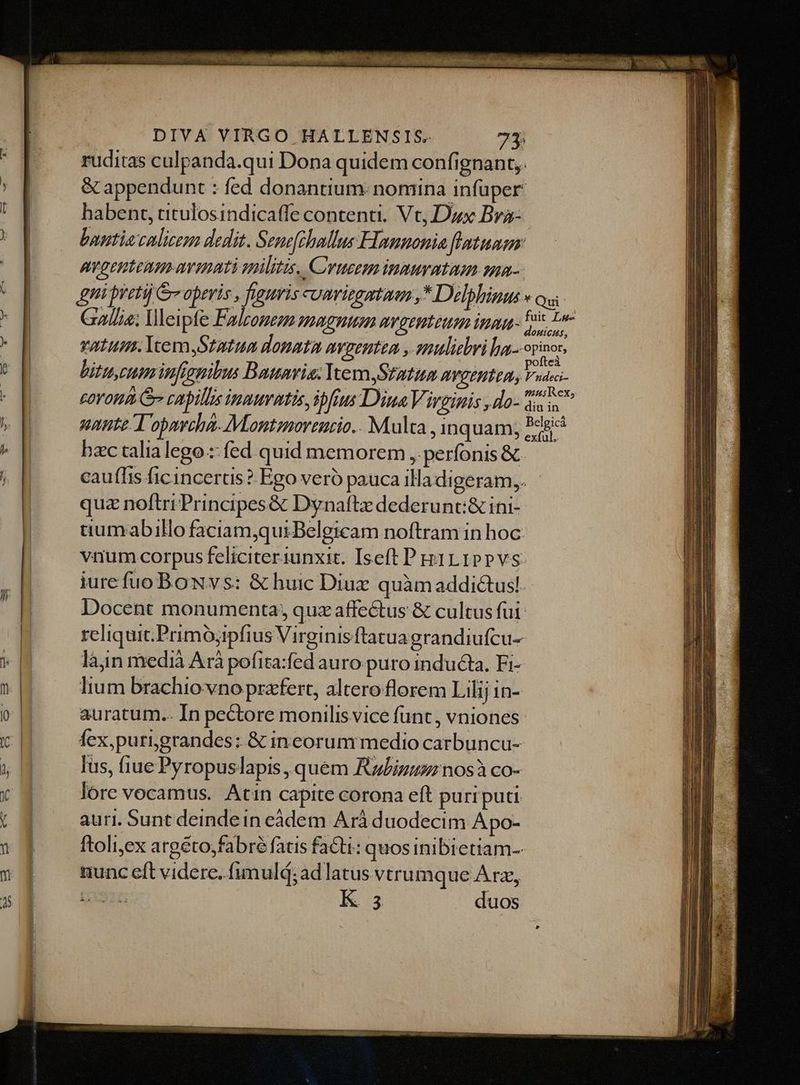 DIVA VIRGO HALLENSIS. 73
ruditas culpanda.qui Dona quidem conſignant,
& appendunt : ſed donantium nomina inſuper
habent, titulos indicaſſe contenti. Vt, Dux Bra-
bantiæ calicem dedit. Seneſchallus Hannoniæ ſtatuam
argenteam armati militis. Crucem inauratam ma-
gni pretij & operis, figuris variegatam, * Delphinus
Galliæ; Illeipſe Falconem magnum argenteum inau-
ratum. Item, Statua donata argentea, muliebri ha-
bitu, cum inſignibus Bauariæ. Item, Statua argentea,
corona & capillis inauratis, ipſius Diuæ Virginis, do-
nante Toparcha Montmorencio. Multa, inquam,
hæc talia lego : ſed quid memorem, perſonis &
cauſſis ſic incertis? Ego verò pauca illa digeram,
quæ noſtri Principes & Dynaſtæ dederunt: & ini-
tium ab illo faciam, qui Belgicam noſtram in hoc
vnum corpus feliciter iunxit. Is eſt PHILIPPVS
iure ſuo BONVS: & huic Diuæ quàm addictus!
Docent monumenta, quæ affectus & cultus ſui
reliquit. Primò, ipſius Virginis ſtatua grandiuſcu-
la, in mediâ Arâ poſita: ſed auro puro inducta. Fi-
lium brachio vno præfert, altero florem Lilij in-
auratum. In pectore monilis vice ſunt, vniones
ſex, puri, grandes: & in eorum medio carbuncu-
lus, ſiue Pyropus lapis, quem Rubinum nos à co-
lore vocamus. At in capite corona eſt puri puti
auri. Sunt deinde in eâdem Arâ duodecim Apo-
ſtoli, ex argẽto, fabrè ſatis facti: quos inibi etiam-
nunc eſt videre. ſimulq́; ad latus vtrumque Aræ,
K 3 duos
* Qui
fuit Lu-
douicus,
opinor,
poſteà
Vndeci-
mus Rex,
diu in
Belgicâ
exſul.